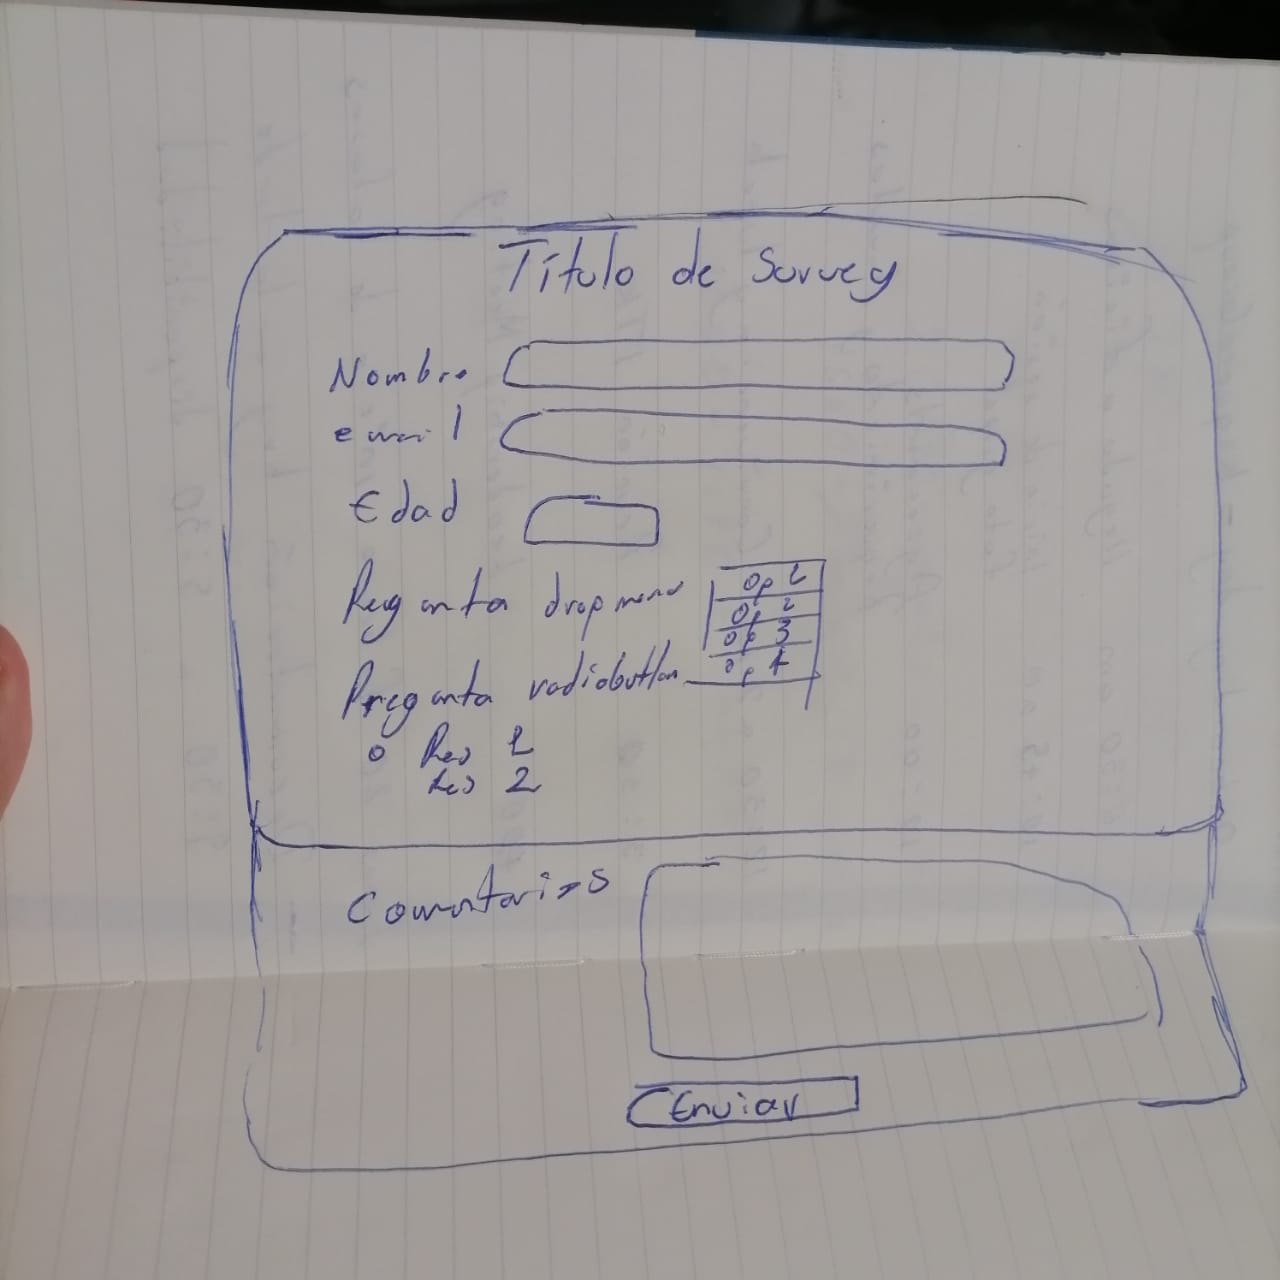 Título de Survey
Nombre
email
Edad
Pregunta dropmenu
Op 1
Op 2
Op 3
Op 4
Pregunta radiobutton
Res 1
Res 2
Comentarios
Enviar